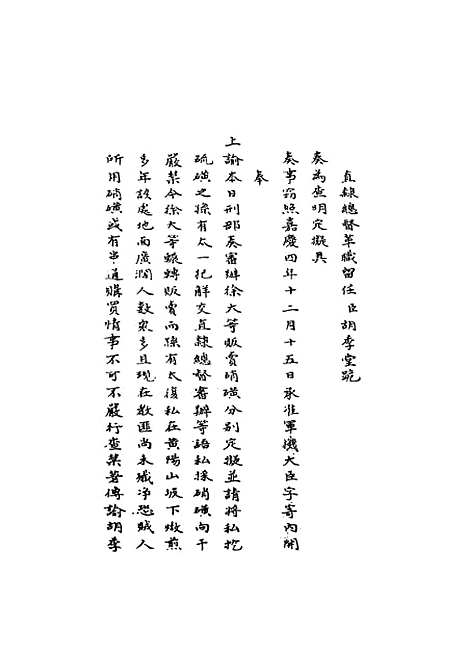 直隸總督革職留任臣胡季堂跪
奏為查明定擬具
奏事竊照嘉慶四年十二月十五日承准軍機大臣字寄內開
奉
上諭本日刑部奏審辦徐大等販賣硝磺分別定擬並請將私挖
硫磺之孫有太一犯解交直隸總督審辦等語私採硝磺向干
嚴禁今徐大等輾轉販賣而孫有太復私在黃陽山坡下墩煎
多年該處地面廣濶人數眾多且現在教匪尚未殲净恐賊人
所用硝磺或有串通購買情事不可不嚴行查禁著傳諭胡季